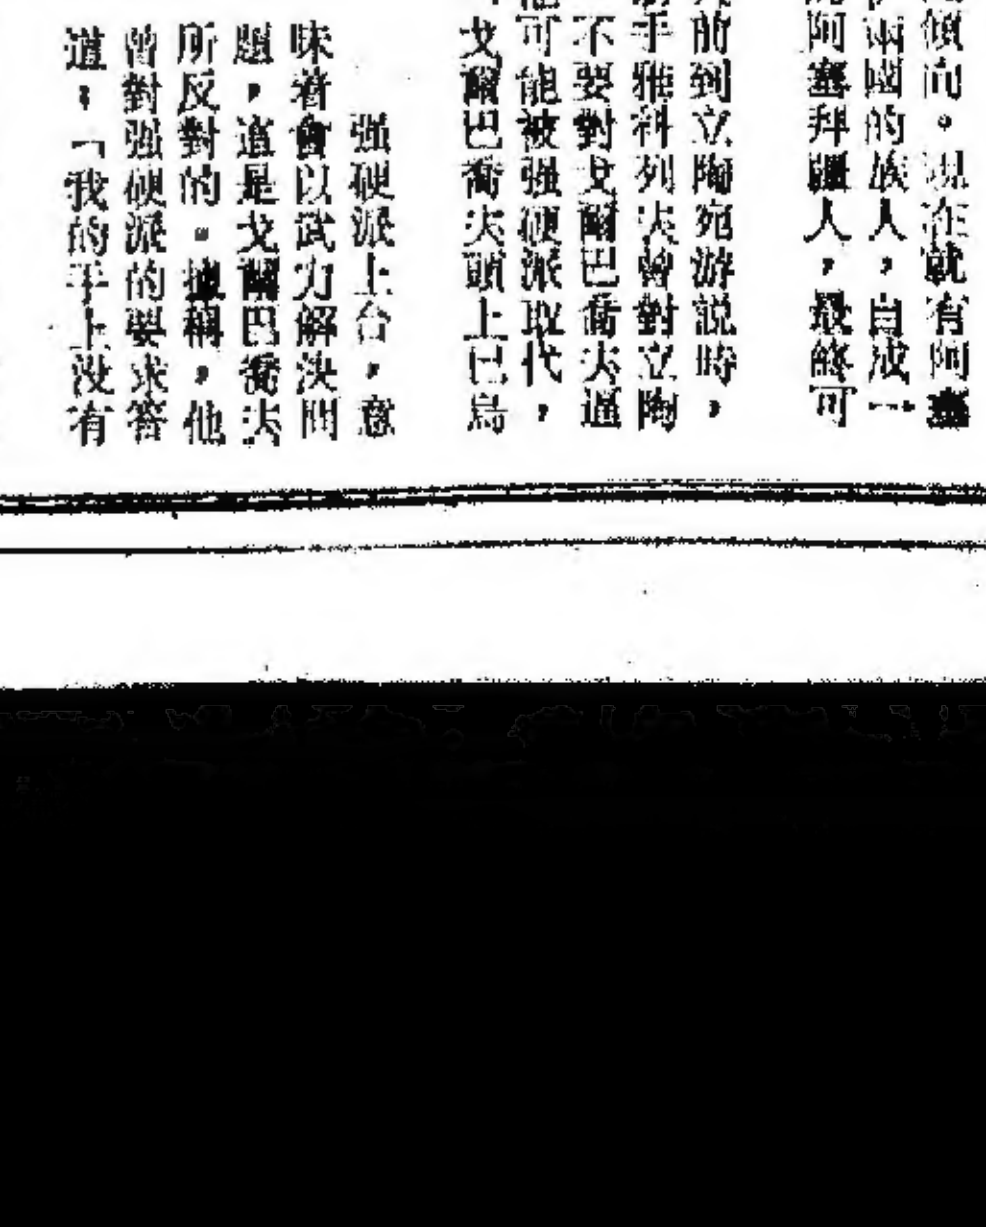 傾向。現在就有阿塞
兩國的族人，自成一
阿塞拜疆人，最終可
前到立陶宛游説時，
手雅科列夫曾對立陶
不要對戈爾巴喬夫逼
可能被强硬派取代，
戈爾巴喬夫頭上已烏
强硬派上台，意
味着會以武力解決問
題，這是戈爾巴喬夫
所反對的。據稱，他
曾對强硬派的要求答
道：「我的手上没有